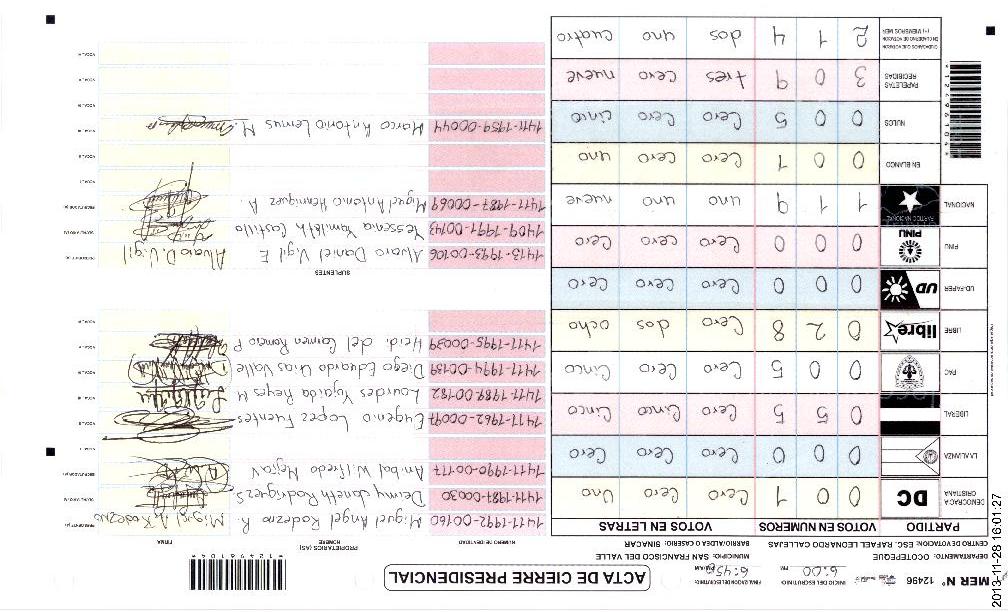 MER N° 12496
INICIO DEL ESCRUTINIO 6:00 PM
FINALIZACION DEL ESCRUTINIO:
ACTA DE CIERRE PRESIDENCIAL
*12496104*
DEPARTAMENTO: OCOTEPEQUE
MUNICIPIO: SAN FRANCISCO DEL VALLE
CENTRO DE VOTACION: ESC. RAFAEL LEONARDO CALLEJAS
BARRIO/ALDEA/CASERIO: SINACAR
PARTIDO VOTOS EN NUMEROS VOTOS EN LETRAS
DEMOCRACIA CRISTIANA DC 0 0 1 Cero Cero Uno
LA ALIANZA 0 0 0 Cero Cero Cero
LIBERAL 0 5 5 Cero Cinco Cinco
PAC 0 0 5 Cero Cero Cinco
LIBRE libre 0 2 8 Cero dos ocho
UD-FAPER UD 0 0 0 Cero Cero Cero
PINU PINU 0 0 0 Cero Cero Cero
NACIONAL PARTIDO NACIONAL 1 1 9 uno uno nueve
EN BLANCO 0 0 1 Cero Cero uno
NULOS 0 0 5 Cero Cero cinco
PAPELETAS RECIBIDAS 3 0 9 tres Cero nueve
CIUDADANOS QUE VOTARON EN CUADERNO DE VOTACION (+) MIEMBROS MER 2 1 4 dos uno cuatro
*12496104*
PROPIETARIOS (AS)
NUMERO DE IDENTIDAD NOMBRE FIRMA
1411-1992-00160 Miguel Angel Rodezno R. Miguel A Rodezno PRESIDENTE (A)
1411-1987-00030 Denny Janeth Rodriguez S
1411-1990-00177 Anibal Wilfredo Mejia V ESCRUTADOR (A)
1411-1962-00097 Eugenio Lopez Fuentes
1411-1989-00182 Lourdes Ygaida Reyes M
1411-1994-00189 Diego Eduardo Dias Valle
1411-1995-00039 Heidi del Carmen Romero P
SUPLENTES
1413-1993-00106 Alvaro Daniel Vigil E Alvaro D. Vigil
1409-1991-00143 Yessenia Yamileth Castillo
1411-1987-00069 Miguel Antonio Henriquez A.
1411-1959-00044 Marco Antonio Lemus M.
2013-11-28 16:01:27